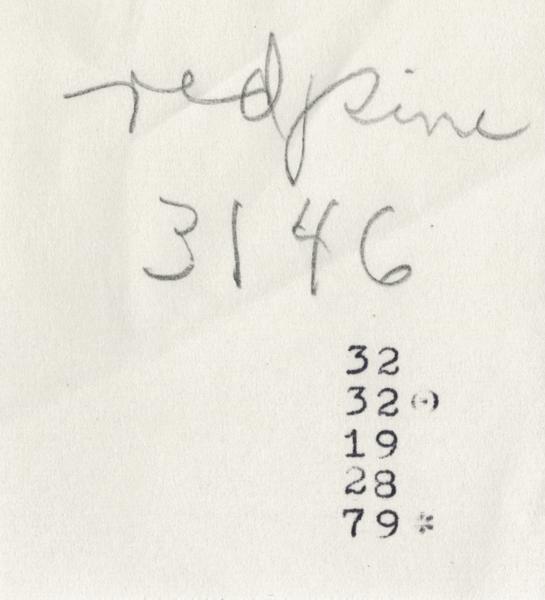 red pine
3146
32
32 (-)
19
28
79 *